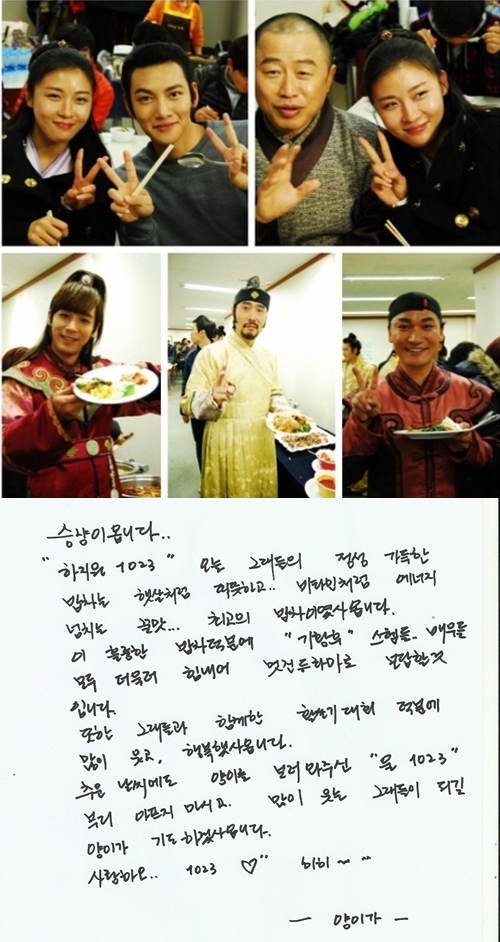 승냥이옵니다..
"하지원 1023" 오늘 그대들의 정성 가득한
밥차는 햇살처럼 따뜻하고.. 비타민처럼 에너지
넘치는 꿀맛... 최고의 밥차이였사옵니다.
이 훌륭한 밥차덕분에 "기황후" 스텝들.. 배우들
모두 더욱더 힘내어 멋진드라마로 보답할것
입니다.
또한 그대들과 함께한 닭싸기대회 덕분에
많이 웃고, 행복했사옵니다.
추운 날씨에도 양이를 보러와주신 "울 1023"
부디 아프지 마시고. 많이 웃는 그대들이 되길
양이가 기도하겠사옵니다.
사랑하오.. 1023 ♡" 히히 ~ ^^
— 양이가 —